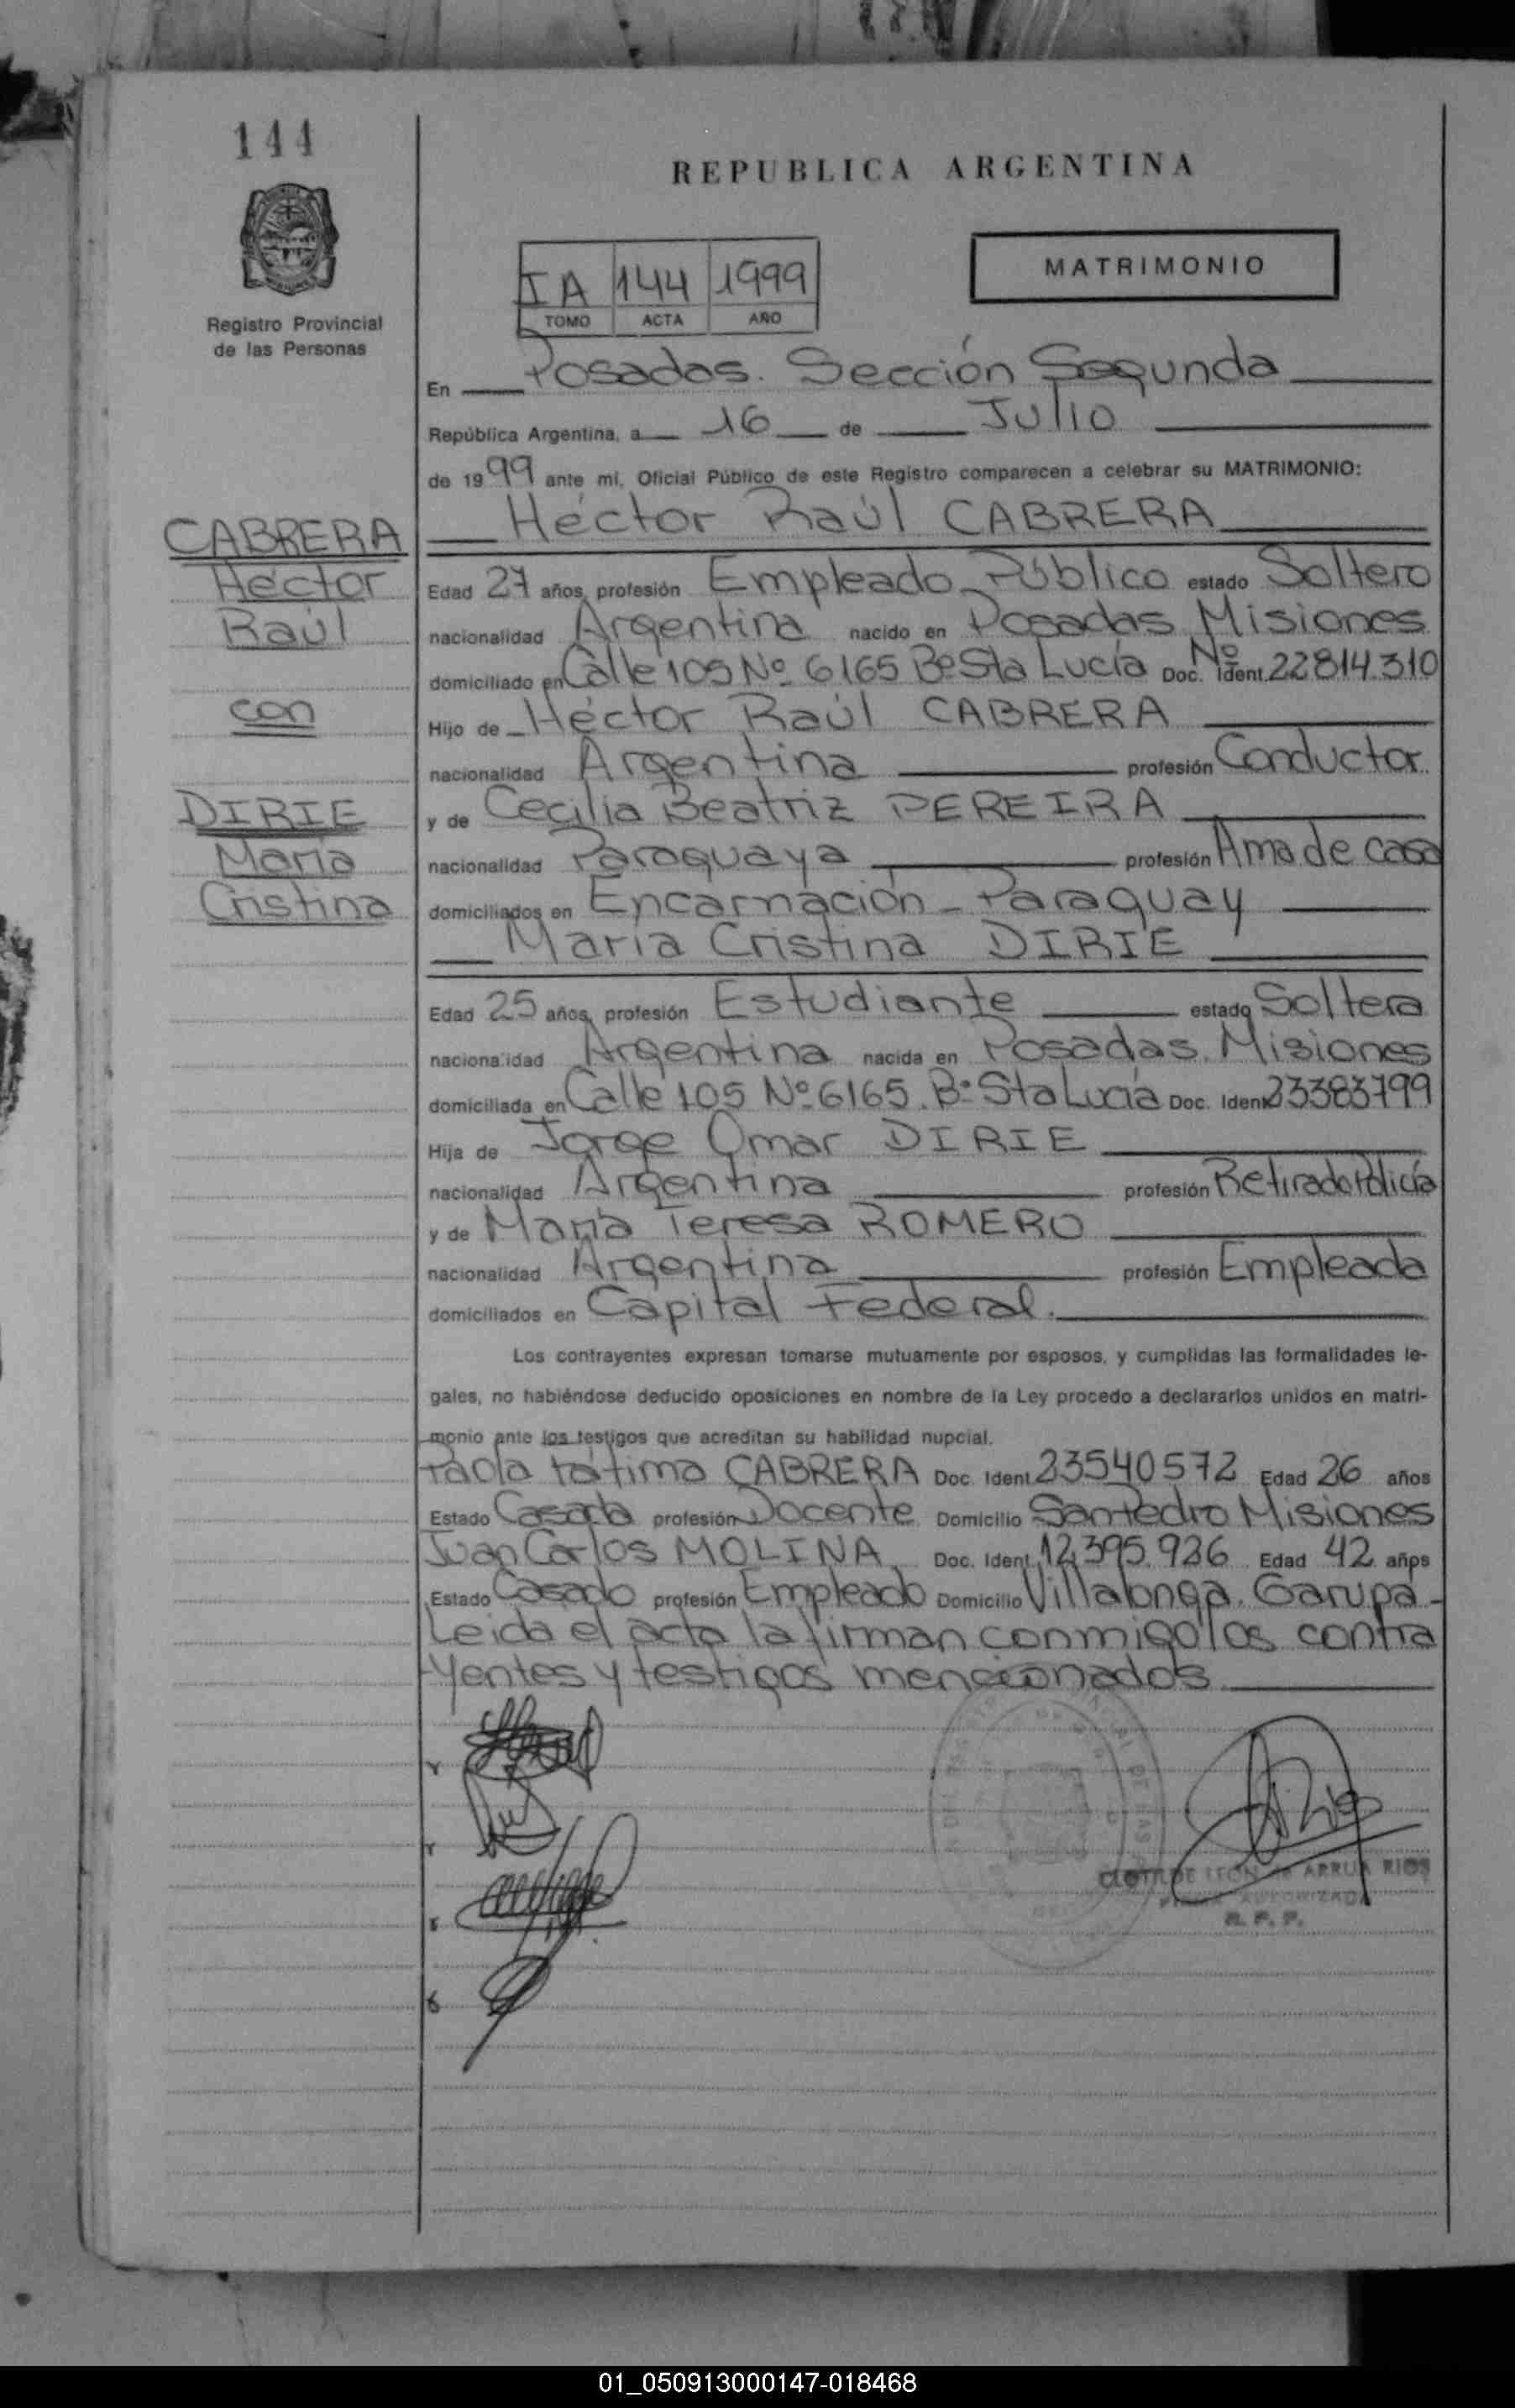 144
REPUBLICA ARGENTINA
Registro Provincial
de las Personas
IA 144 1999
TOMO ACTA AÑO
MATRIMONIO
En Posadas. Sección Segunda
República Argentina, a 16 de Julio
de 1999 ante mi, Oficial Público de este Registro comparecen a celebrar su MATRIMONIO:
Héctor Raúl CABRERA
CABRERA
Héctor
Raúl
con
DIRIE
María
Cristina
Edad 27 años, profesión Empleado Público estado Soltero
nacionalidad Argentina nacido en Posadas Misiones
domiciliado en Calle 105 Nº 6165 Bº Sta Lucía Doc. Nº Ident. 22814.310
Hijo de Héctor Raúl CABRERA
nacionalidad Argentina profesión Conductor
y de Cecilia Beatriz PEREIRA
nacionalidad Paraguaya profesión Ama de casa
domiciliados en Encarnación - Paraguay
María Cristina DIRIE
Edad 25 años, profesión Estudiante estado Soltera
nacionalidad Argentina nacida en Posadas. Misiones
domiciliada en Calle 105 Nº 6165. Bº Sta Lucía Doc. Ident. 23383799
Hija de Jorge Omar DIRIE
nacionalidad Argentina profesión Retirado Policía
y de María Teresa ROMERO
nacionalidad Argentina profesión Empleada
domiciliados en Capital Federal.
Los contrayentes expresan tomarse mutuamente por esposos, y cumplidas las formalidades le-
gales, no habiéndose deducido oposiciones en nombre de la Ley procedo a declararlos unidos en matri-
monio ante los testigos que acreditan su habilidad nupcial.
Paola Fátima CABRERA Doc. Ident. 23540572 Edad 26 años
Estado Casada profesión Docente Domicilio San Pedro Misiones
Juan Carlos MOLINA Doc. Ident. 12.395.926 Edad 42 años
Estado Casado profesión Empleado Domicilio Villalonga. Garupá -
Leida el acta la firman conmigo los contra
yentes y testigos mencionados
CLOTILDE LEON de ARRUA RIOS
AUTORIZADA
R. P. P.
01_050913000147-018468